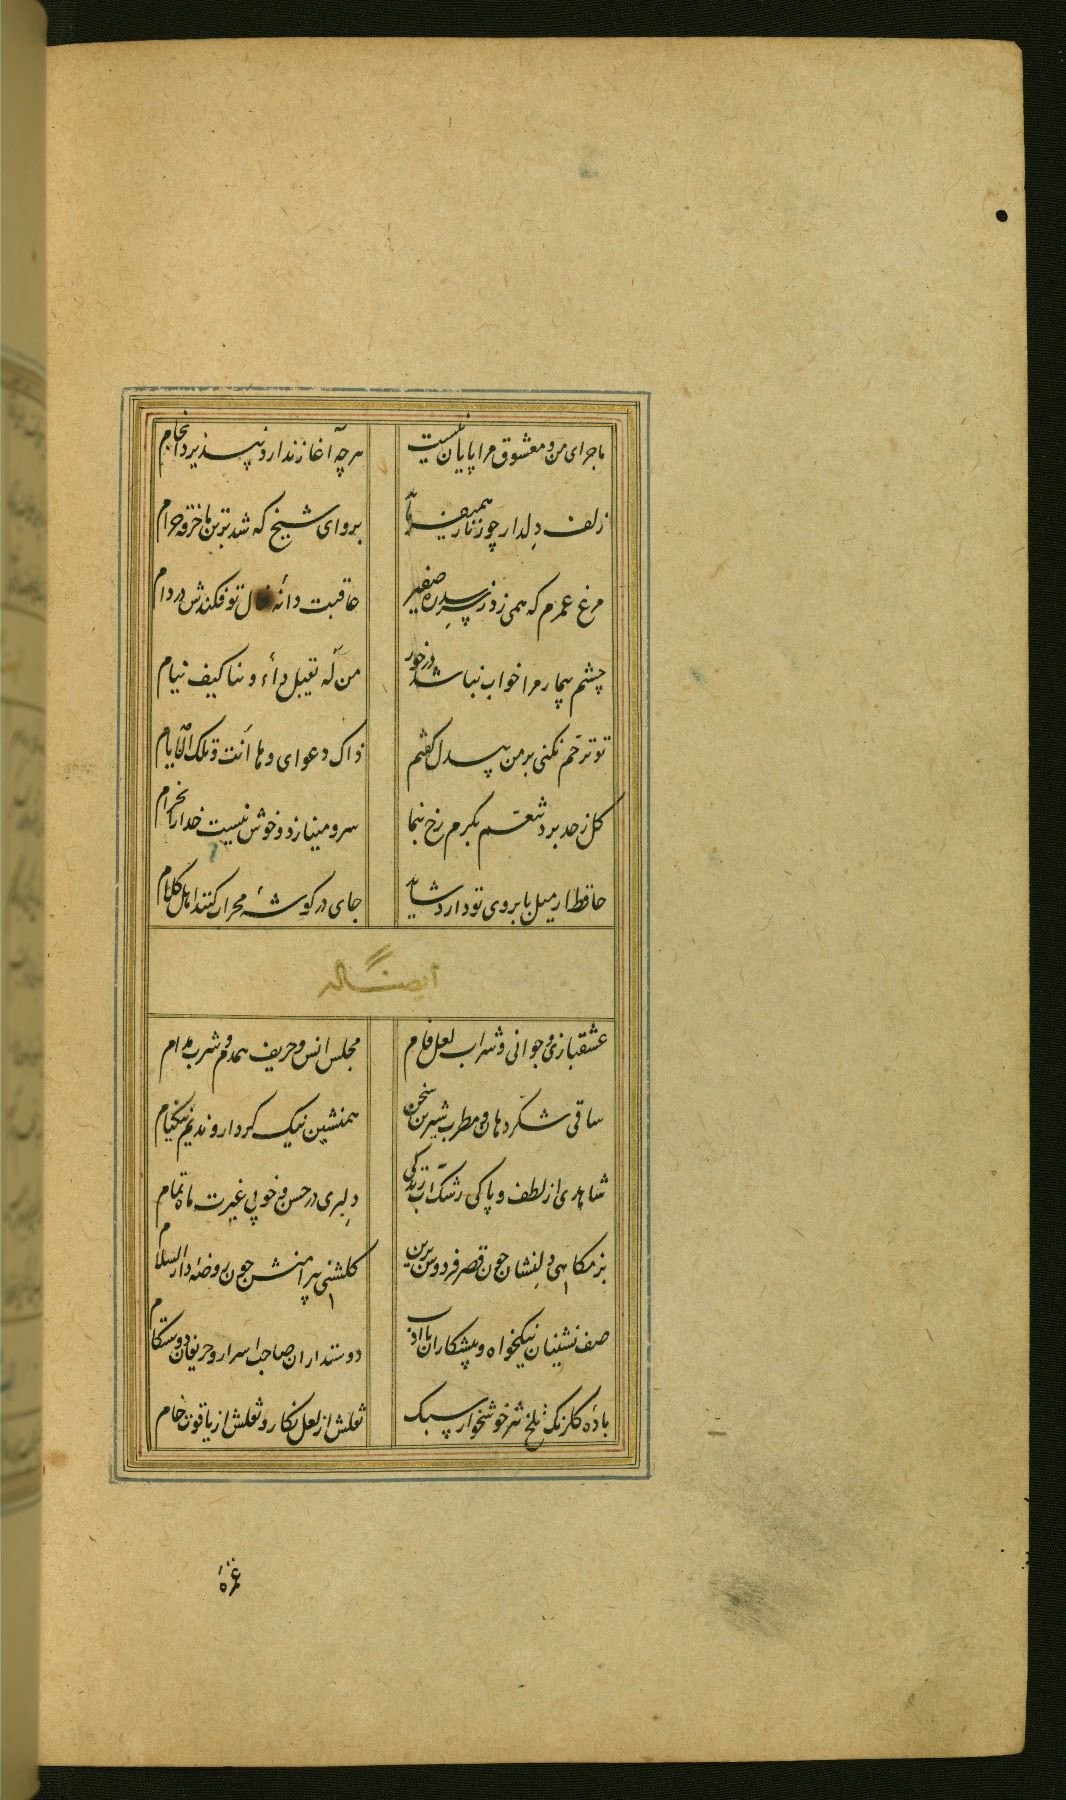 ماجرای من و معشوق مرا پایان نیست
هرچه آغاز ندارد نپذیرد انجام
زلف دلدار چو زنار همی‌فرماید
برو ای شیخ که شد بر تن ما خرقه حرام
مرغ عمرم که همی زد ز سر سدره صفیر
عاقبت دانهٔ خال تو فکندش در دام
چشم بیمار مرا خواب نباشد در خور
من له تقبل داء و نیا کیف نیام
تو ترحم نکنی بر من بیدل گفتم
ذاک دعوای و ها انت و تلک الایام
گل ز حد برد تنعم بکرم رخ بنما
سرو مینازد و خوش نیست خدا را بخرام
حافظ ار میل بابروی تو دارد شاید
جای در گوشهٔ محراب کنند اهل کلام
ایضا له
عشقبازی و جوانی و شراب لعل فام
مجلس انس و حریف همدم و شرب مدام
ساقی شکر دهان و مطرب شیرین سخن
همنشین نیک کردار و ندیم نیکنام
شاهدی از لطف و پاکی رشک آب زندگی
دلبری در حسن و خوبی غیرت ماه تمام
بزمگاهی دلنشان چون قصر فردوس برین
گلشنی پیرامنش چون روضهٔ دار السلام
صف نشینان نیکخواه و پیشکاران با ادب
دوستداران صاحب اسرار و حریفان دوستکام
بادهٔ گلرنگ تلخ تیز خوشخوار سبک
نقلش از لعل نگار و نقلش از یاقوت خام
غمزهٔ